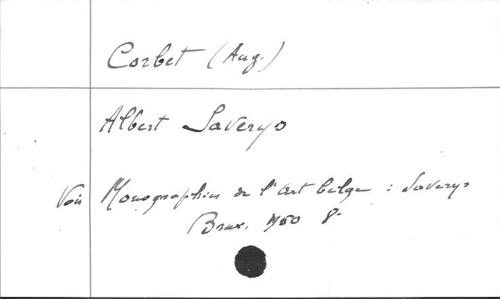 Corbet (Aug.)
Albert Saverys
Voir Monographies de l'art belge : Saverys
Brux. 1950 8°